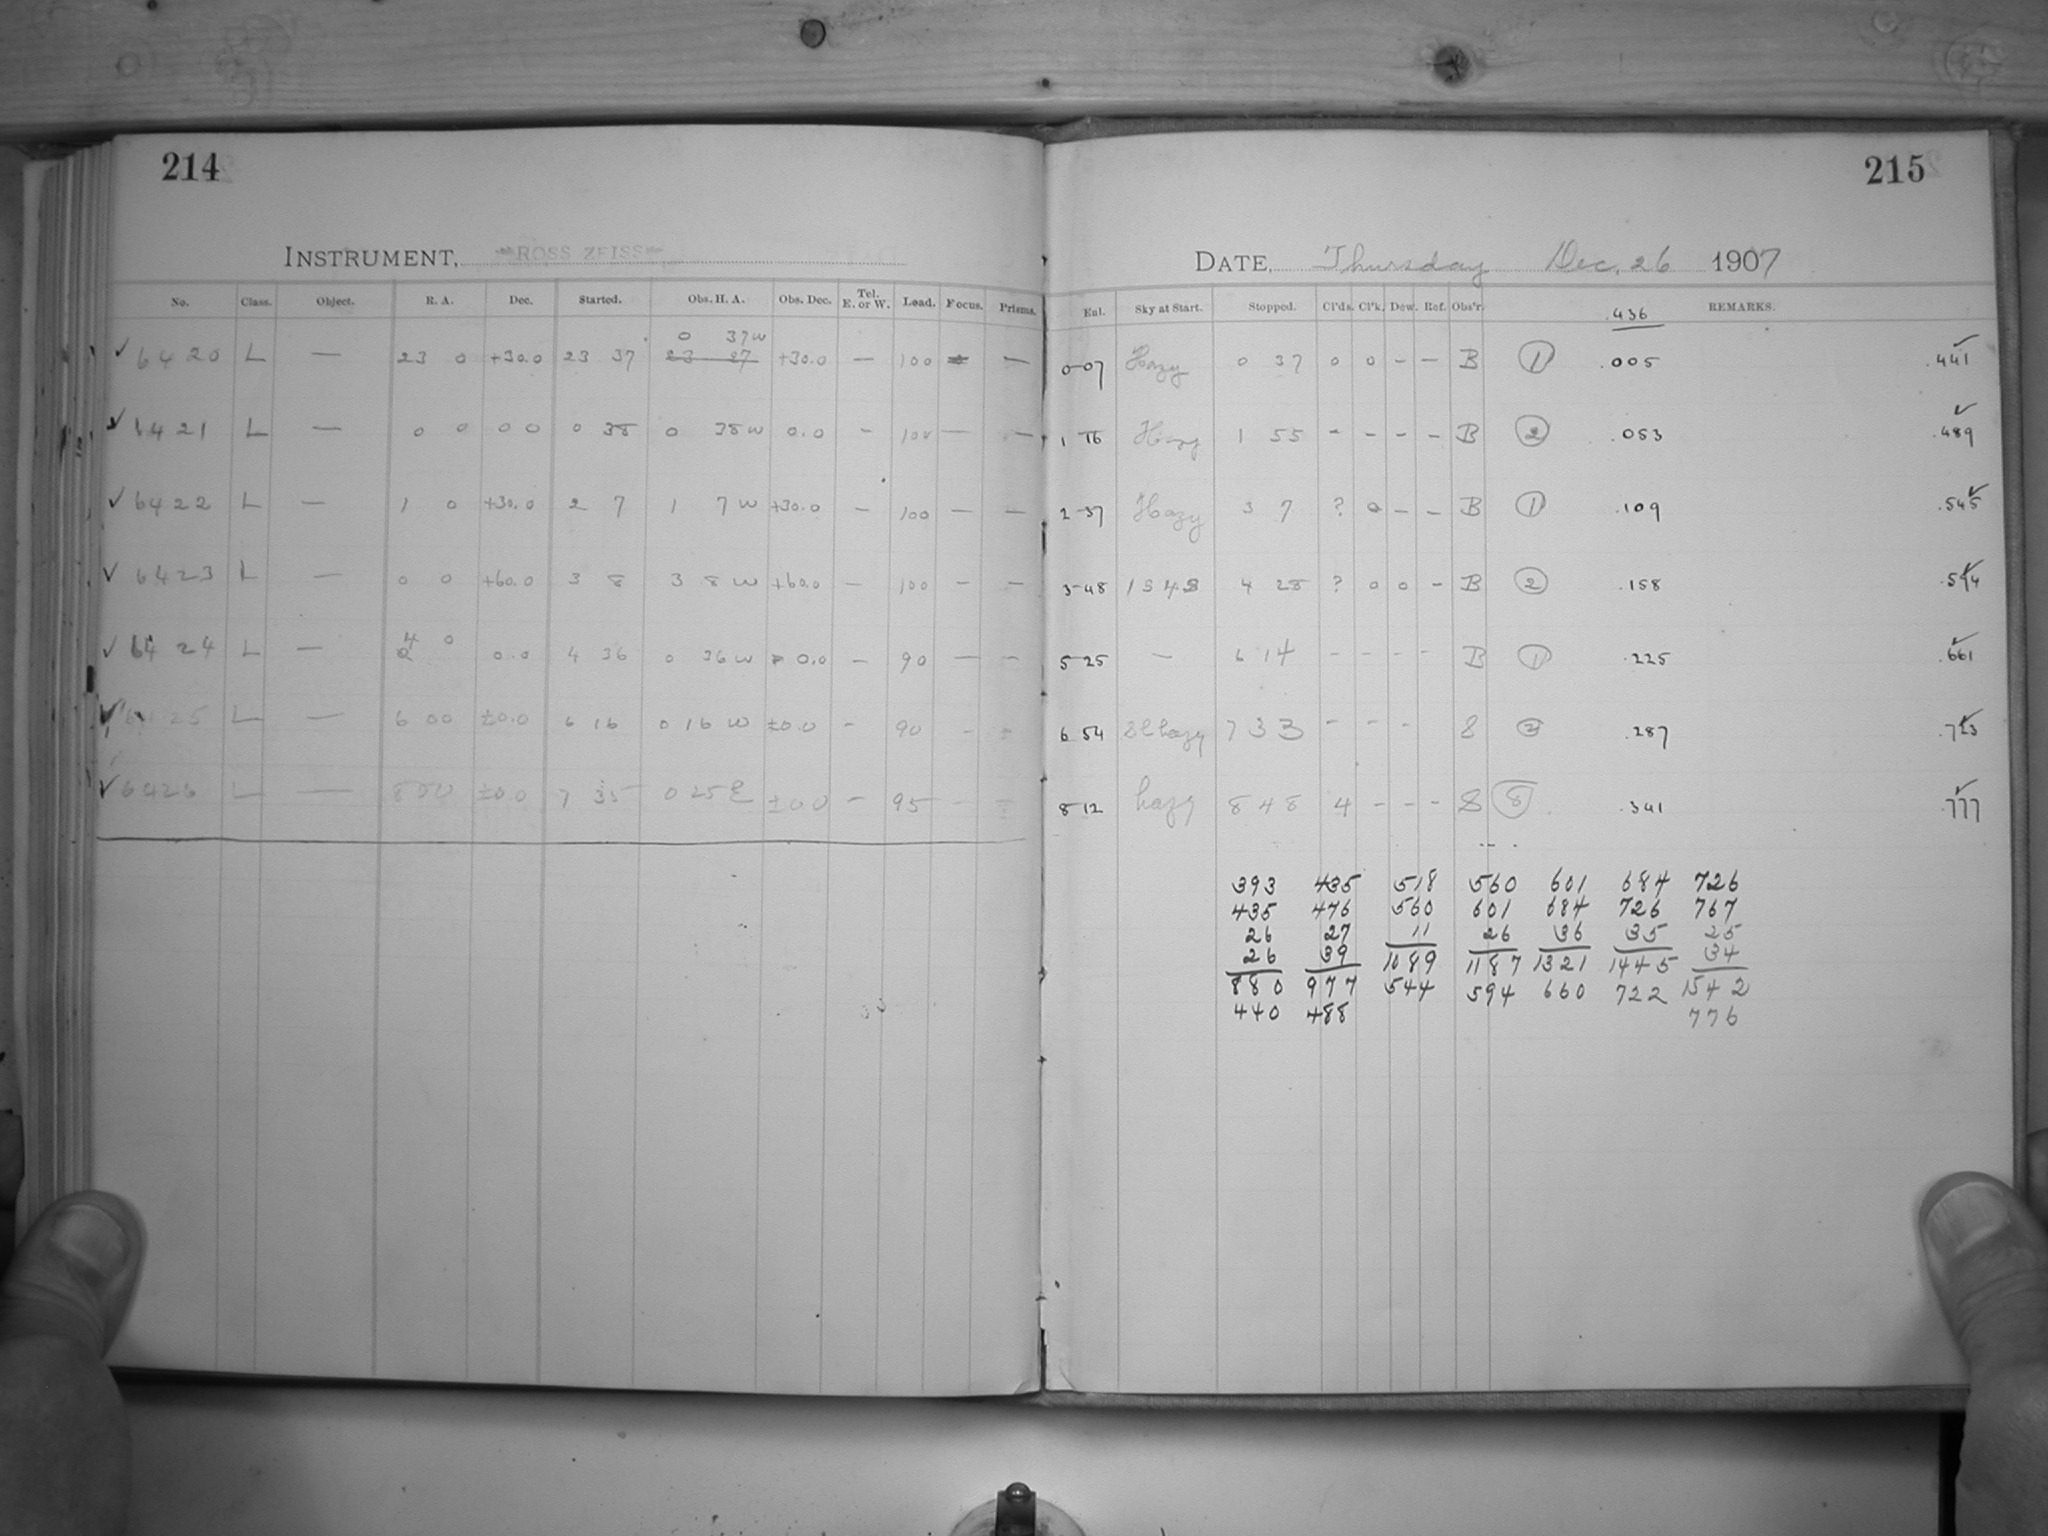 214
INSTRUMENT, ROSS ZEISS
No. Class. Object. R. A. Dec. Started. Obs. H. A. Obs. Dec. Tel. E. or W. Load. Focus. Prisms.
0 37 W
6420 L — 23 0 +30.0 23 37 23 27 +30.0 — 100 —
6421 L — 0 0 0 0 0 38 0 38 W 0.0 - 100 — —
6422 L — 1 0 +30.0 2 7 1 7 W +30.0 — 100 — —
6423 L — 0 0 +60.0 3 8 3 8 W +60.0 — 100 - —
6424 L — 4 0 0.0 4 36 0 36 W 0.0 — 90 — —
6425 L — 6 00 ±0.0 6 16 0 16 W ±0.0 - 90 -
6426 L — 8 00 ±0.0 7 35 0 25 E ±00 — 95 -
215
DATE, Thursday Dec. 26 1907
Eul. Sky at Start. Stopped. Cl'ds. Cl'k. Dew. Ref. Obs'r. REMARKS.
.436
0-07 Hazy 0 37 0 0 - - B 1 .005 .441
1 16 Hazy 1 55 - - - - B 2 .053 .489
2-37 Hazy 3 7 ? 0 - - B 1 .109 .545
3-48 1 S 4 S 4 28 ? 0 0 - B 2 .158 .594
5-25 — 6 14 - - - - B 1 .225 .661
6 54 Sl hazy 7 33 - - - 8 2 .287 .723
8 12 hazy 8 48 4 - - - 8 8 .341 .777
393 435 518 560 601 684 726
435 476 560 601 684 726 767
26 27 11 26 36 35 25
26 39 1089 1187 1321 1445 34
880 977 544 594 660 722 1542
440 488 776